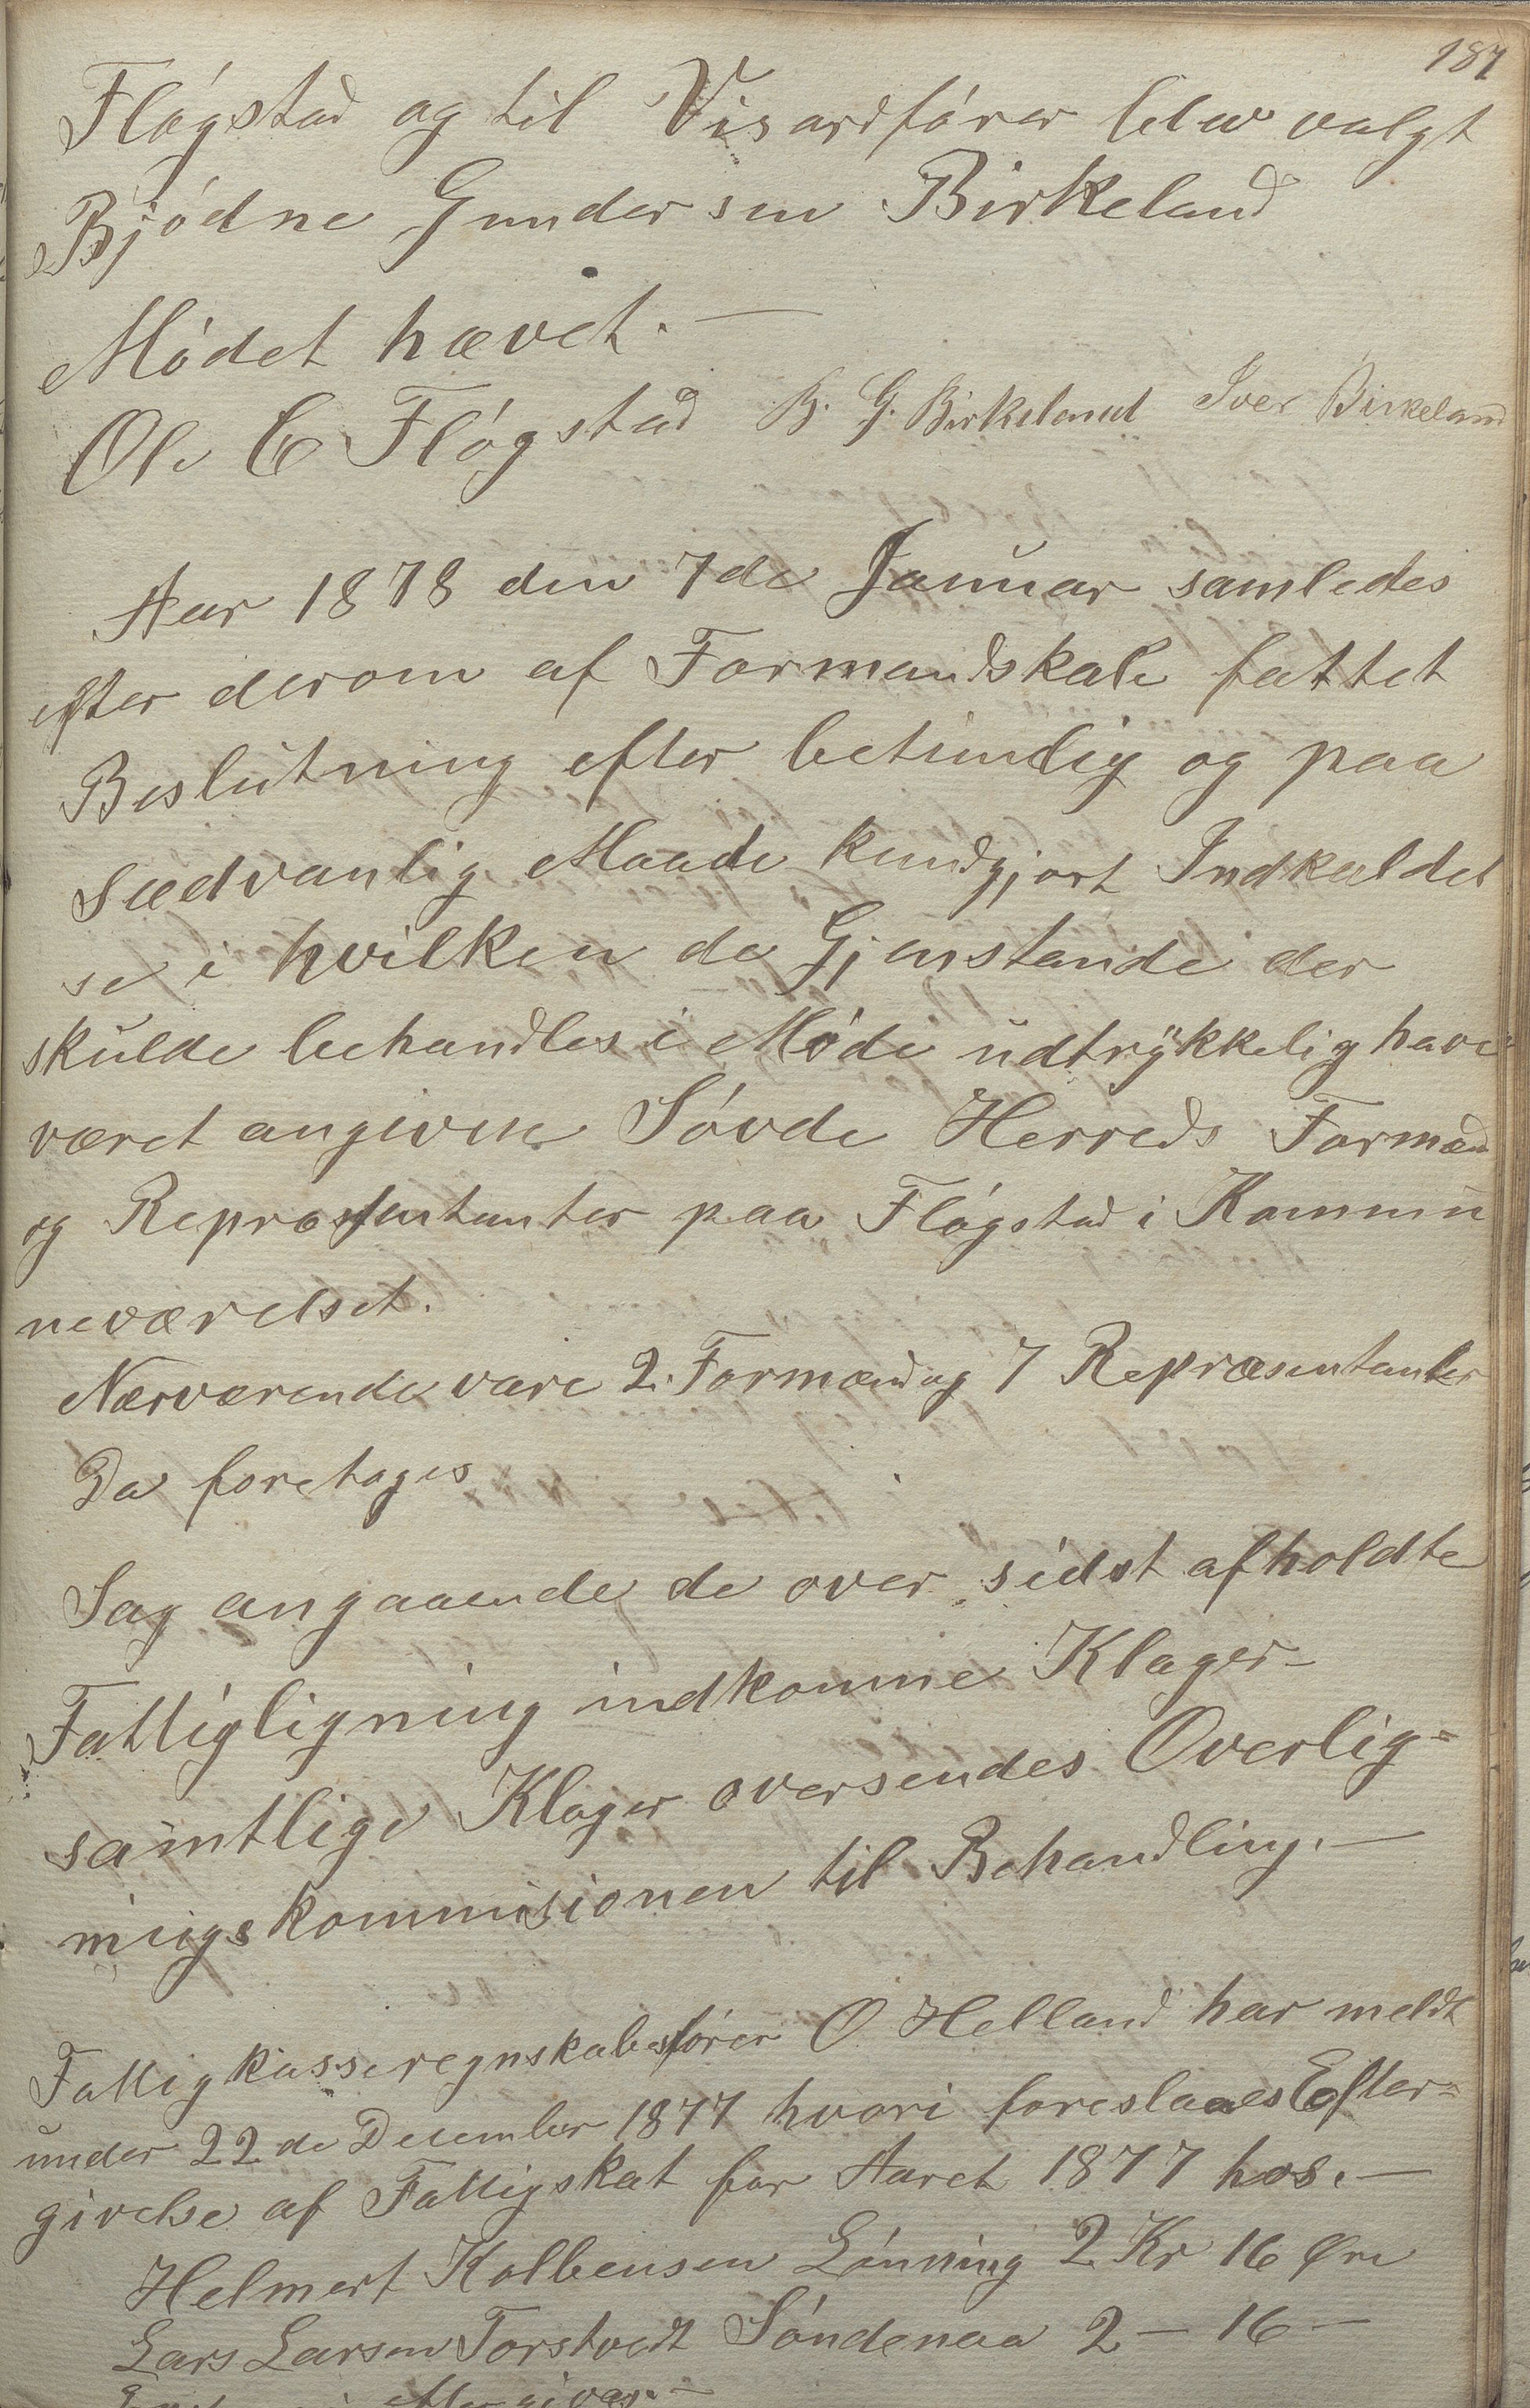 187
Fløgstad og til Viseordfører blev valgt
Bjødne Gundersen Birkeland
Mødet hævet. —
Ole E Fløgstad B. G. Birkeland Iver Birkeland
Aar 1878 den 7de Januar samledes
efter derom af Formandskab fattet
Beslutning efter betimelig og paa
sædvanlig Maade kundgjort Indkaldel
se i hvilken de Gjenstande der
skulde behandles i Møde udtrykkelig have
været angivne Søvde Herreds Formænd
og Repræsentanter paa Fløgstad i Kommu
neværelset.
Nærværende vare 2. Formænd og 7 Repræsentanter
Da foretoges
Sag angaaende de over sidst afholdte
Fattigligning indkomne Klager-
samtlige Klager oversendes Overlig-
ningskommisionen til Behandling. —
Fattigkasseregnskabsfører O Helland har meldt
under 22de December 1877 hvori foreslaaes Efter-
givelse af Fattigskat for Aaret 1877 hos. —
Helmert Kolbensen Lønning 2 Kr 16 Øre
Lars Larsen Torstvedt Søndenaa 2 — 16 —
eftergives. —